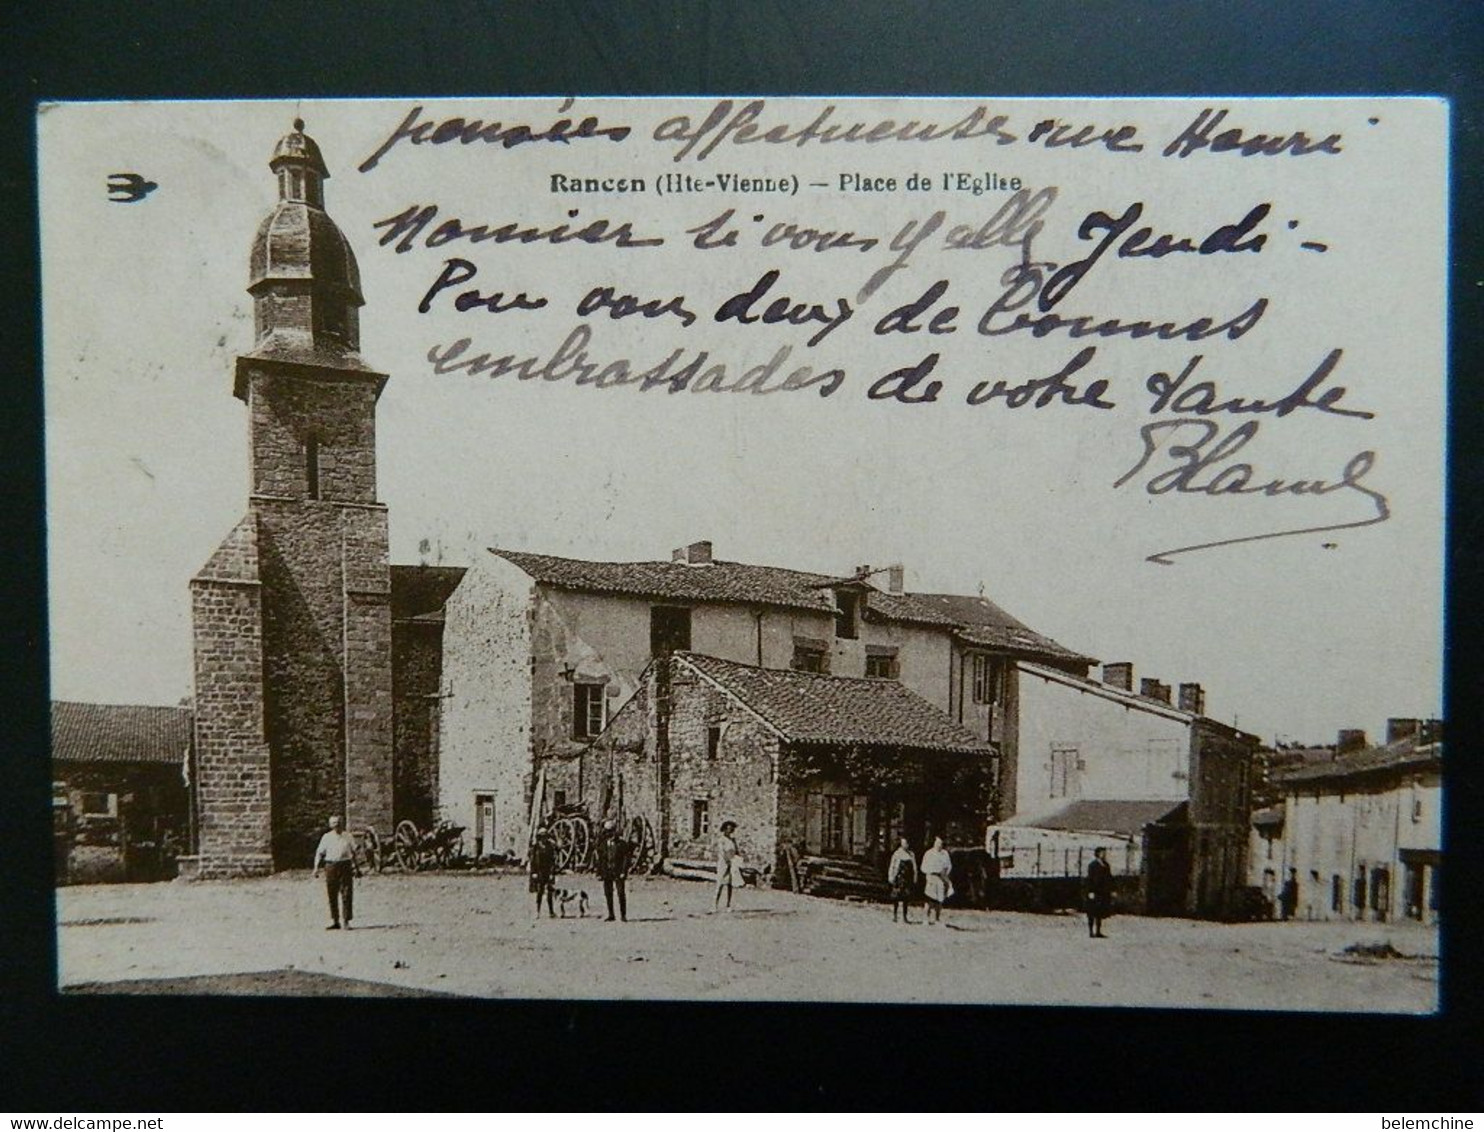 pensées affectueuses rue Henri
Rancon (Hte-Vienne) — Place de l'Eglise
Monnier si vous y allé Jeudi -
Pour vous deux de Bonnes
embrassades de votre tante
Blanche
www.delcampe.net
belemchine